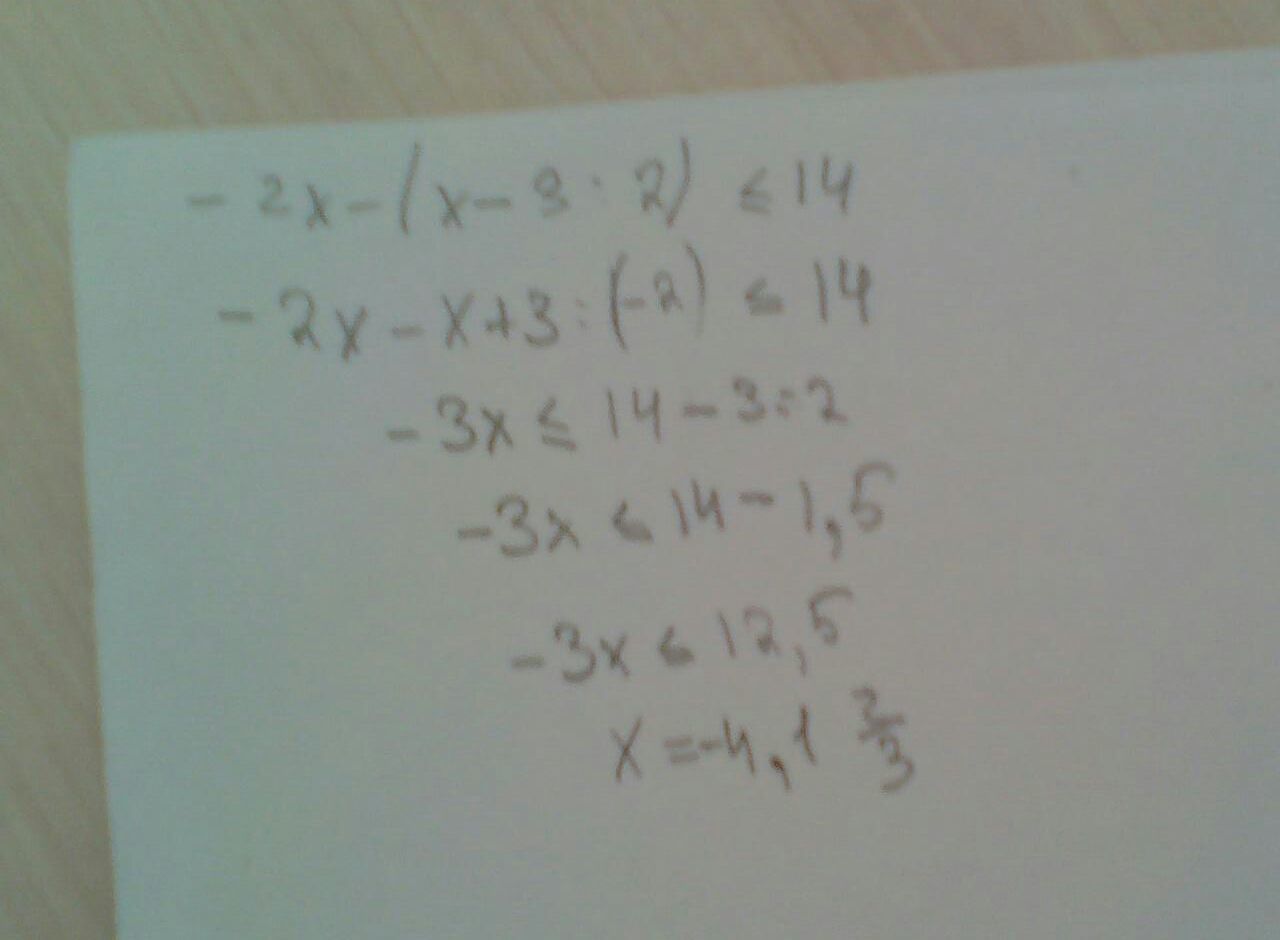 - 2x - (x - 3 : 2) ≤ 14
- 2x - x + 3 : (-2) ≤ 14
- 3x ≤ 14 - 3 : 2
- 3x ≤ 14 - 1,5
- 3x ≤ 12,5
x = -4,1 2/3